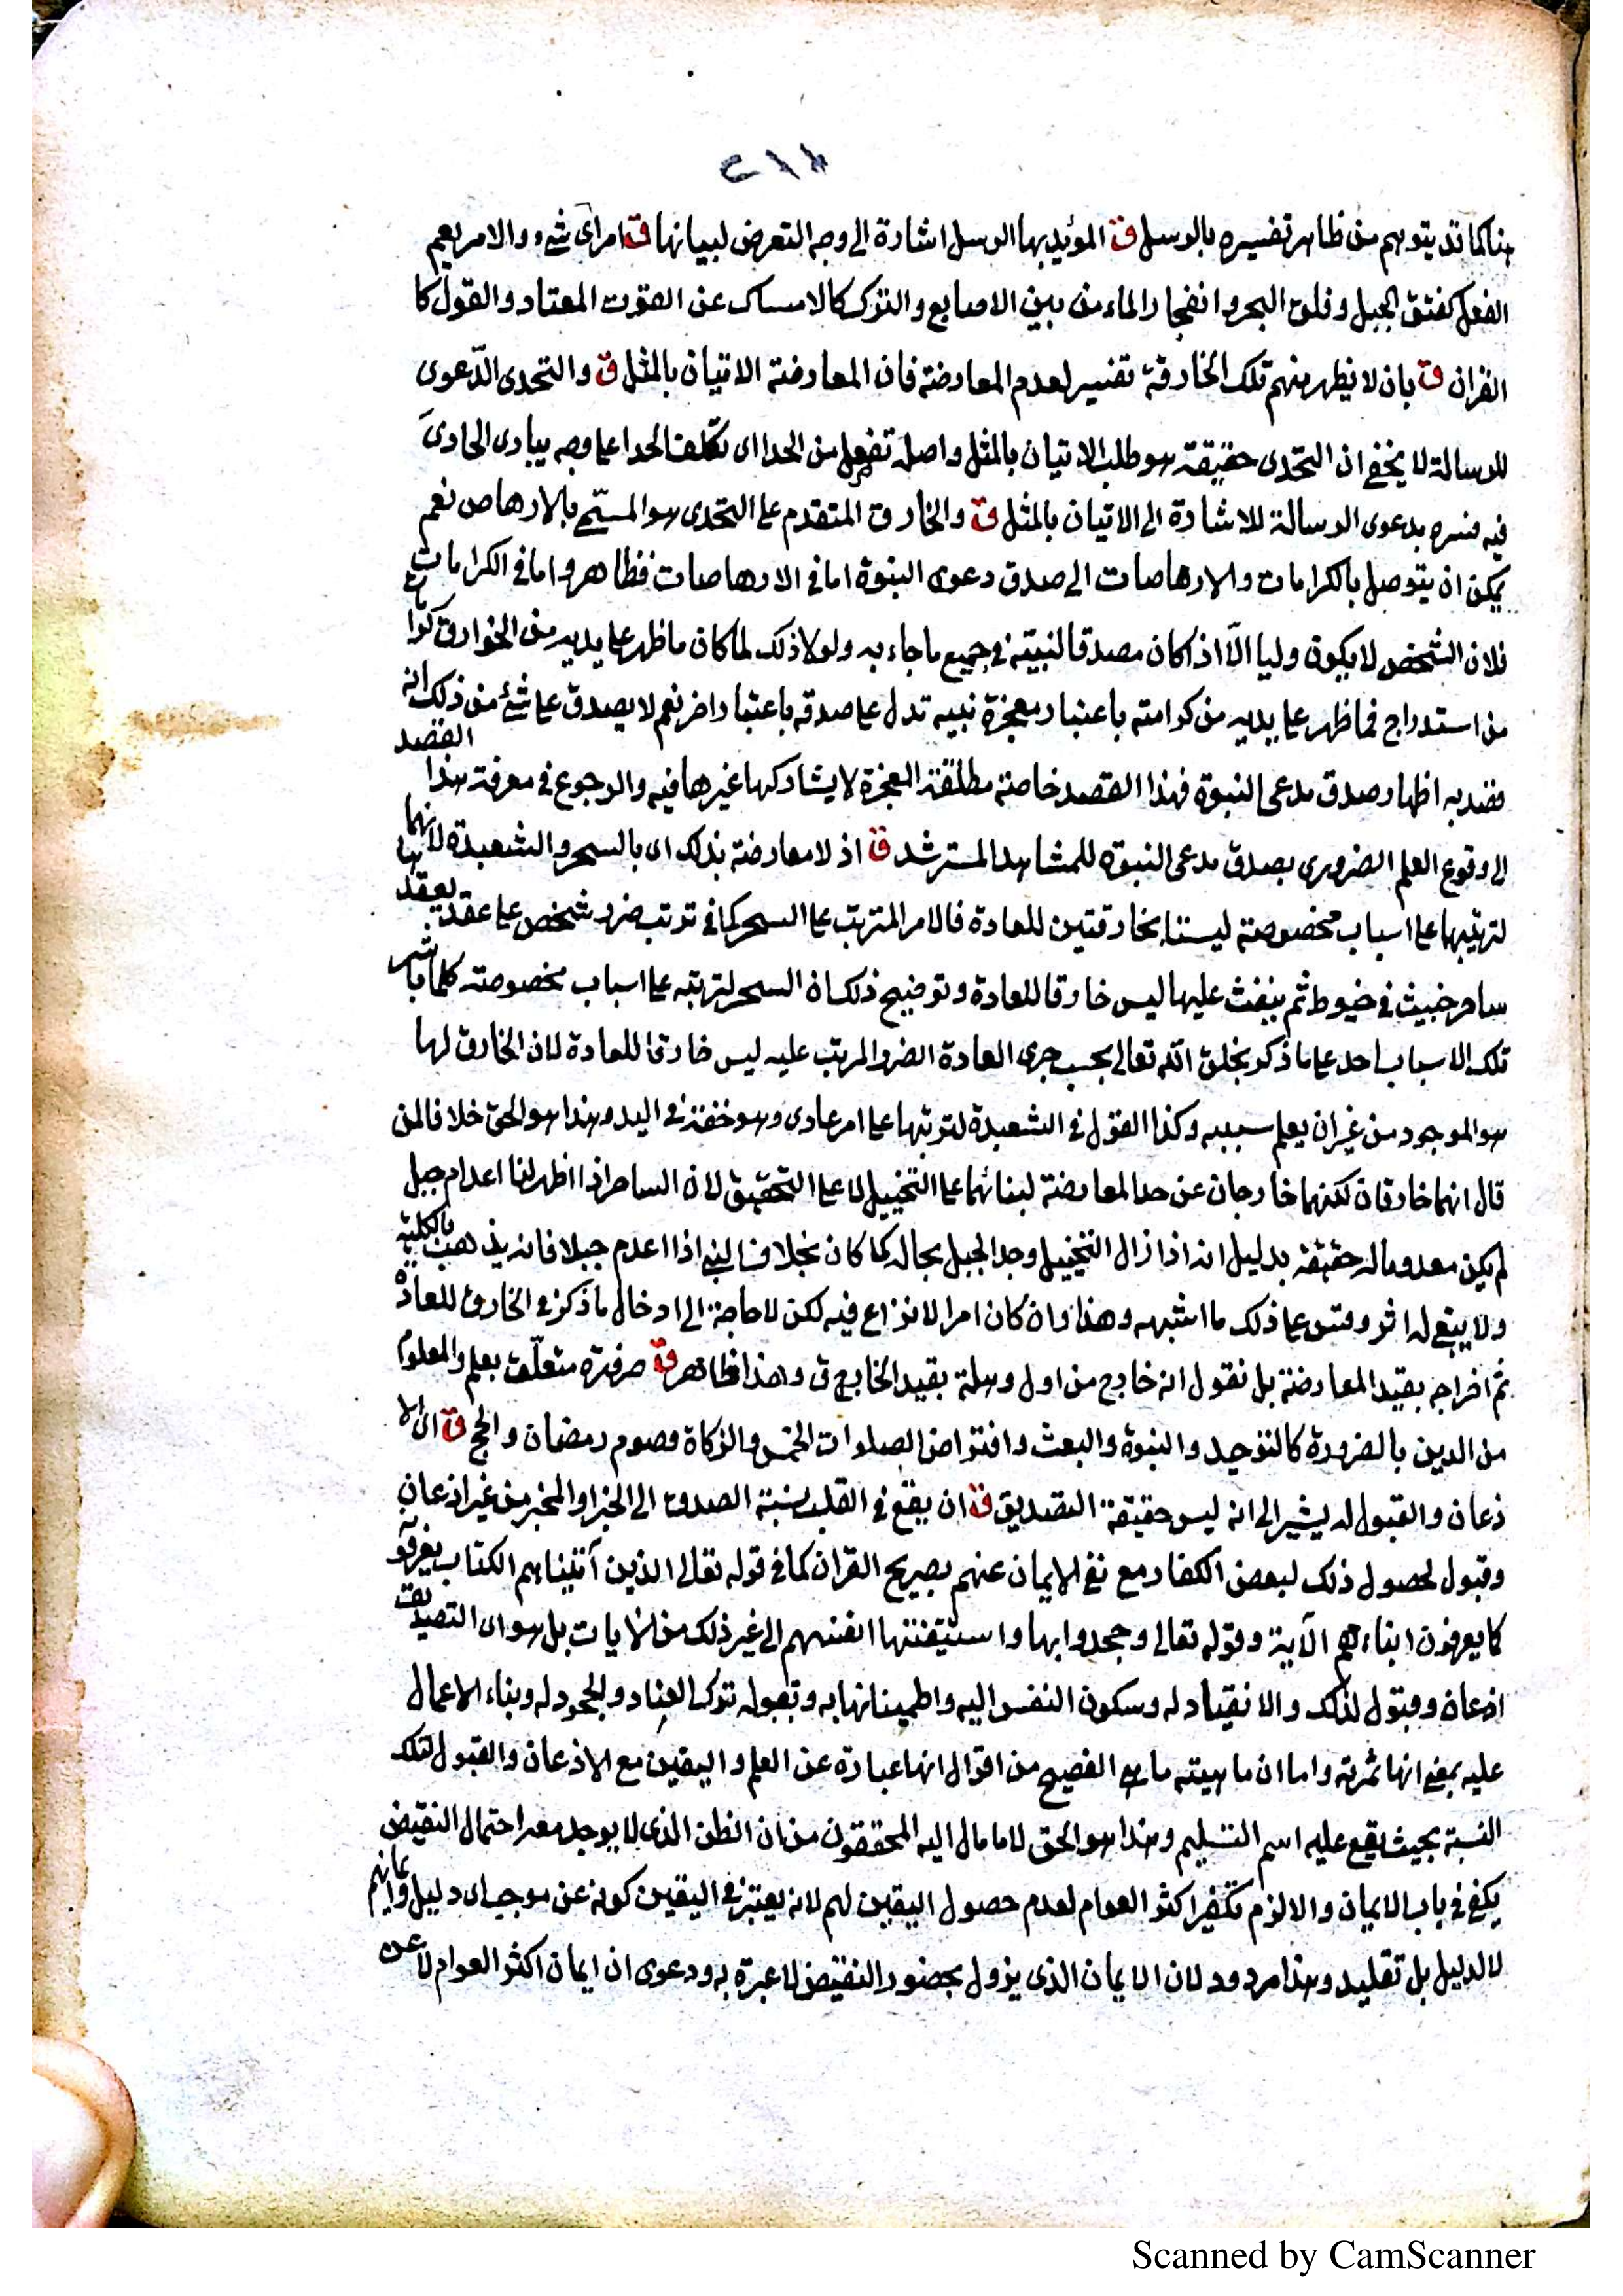 ٢١٨
هنا كما قد يتوهم من ظاهر تفسيره بالرسل ق المؤيد بها الرسل اشارة الى وجه التعرض لبيانها ق امر اى شيء والامر يعم
الفعل كفتق الجبل وفلق البحر وانفجار الماء من بين الاصابع والترك كالامساك عن القوت المعتاد والقول كا
القران ق بان لا يظهر منهم تلك الخارقة تفسير لعدم المعارضة فان المعارضة الاتيان بالمثل ق والتحدى الدّعوى
للرسالة لا يخفى ان التحدى حقيقة هو طلب الاتيان بالمثل واصله تفعل من الحدا اى تكلف الحدا على وجه يبارى الحادى
فيه فسره بدعوى الرسالة للاشارة الى الاتيان بالمثل ق والخارق المتقدم على التحدى هو المسمّى بالارهاص نعم
يمكن ان يتوصل بالكرامات والارهاصات الى صدق دعوى النبوة اما فى الارهاصات فظاهر واما فى الكرامات
فلان الشخص لا يكون وليا الّا اذا كان مصدقا لنبيّه فى جميع ما جاء به ولولا ذلك لما كان ما ظهر على يديه من الخوارق كرا
من استدراج فما ظهر على يديه من كرامته باعتبار معجزة نبيه تدل على صدقه باعتبار اخر نعم لا يصدق على شئ من ذلك انه
القصد
قصد به اظهار صدق مدعى النبوة فهذا القصد خاصة مطلقة المعجزة لا يشاركها غيرها فيه والرجوع فى معرفة هذا
الى وقوع العلم الضرورى بصدق مدعى النبوة للمشاهد المسترشد ق اذ لا معارضة بذلك اى بالسحر والشعبدة لانهما
لترتبها على اسباب مخصوصة ليستا بخارقتين للعادة فالامر المترتب على السحر كما فى ترتب ضرر شخص على عقد يعقدها
ساحر خبيث فى خيوط ثم ينفث عليها ليس خارقا للعادة وتوضيح ذلك ان السحر لترتبه على اسباب مخصوصة كلما باشر
تلك الاسباب احد على ما ذكر بخلق الله تعالى بحسب جرى العادة الضر والمرتب عليه ليس خارقا للعادة لان الخارق لها
هو الموجود من غير ان يعلم سببه وكذا القول فى الشعبدة لترتبها على امر عادى وهو خفة فى اليد وهذا هو الحق خلافا لمن
قال انهما خارقان لكنهما خارجان عن حد المعارضة لبنائهما على التخييل لا على التحقيق لان الساحر اذا اظهر لنا اعدام جبل
لم يكن معدوما له حقيقة بدليل انه اذا زال التخييل وجد الجبل بحاله كما كان بخلاف النبى اذا اعدم جبلا فانه يذهب بالكلية
ولا يبقى له اثر وقس على ذلك ما اشبهه وهذا وان كان امرا لا نزاع فيه لكن لا حاجة الى ادخال ما ذكر فى الخارق للعادة
ثم اخراجه بقيد المعارضة بل نقول انه خارج من اول وهلة بقيد الخارق وهذا ظاهر ق ضرورة متعلّق بعلم والمعلوم
من الدين بالضرورة كالتوحيد والنبوة والبعث وافتراض الصلوات الخمس والزكاة وصوم رمضان والحج ق اى الا
ذعان والقبول له يشير الى انه ليس حقيقة التصديق ق ان يقع فى القلب نسبة الصدق الى الخبر او المخبر من غير اذعان
وقبول لحصول ذلك لبعض الكفار مع نفى الايمان عنهم بصريح القران كما فى قوله تعالى الذين آتيناهم الكتاب يعرفو
كما يعرفون ابناءهم الآية وقوله تعالى وجحدوا بها واستيقنتها انفسهم الى غير ذلك من الآيات بل هو اى التصديق
اذعان وقبول لذلك والانقياد له وسكون النفس اليه واطمينانها به وقبوله بترك العناد والجحود له وبناء الاعمال
عليه بمعنى انها ثمرته واما ان ماهيته ما هى الفصيح من اقوال انها عبارة عن العلم واليقين مع الاذعان والقبول لتلك
النسبة بحيث يقع عليه اسم التسليم وهذا هو الحق لا ما مال اليه المحققون من ان الظن الذى لا يوجد معه احتمال النقيض
يكفى فى باب الايمان والا لزم تكفير اكثر العوام لعدم حصول اليقين لهم لانه يعتبر فى اليقين كونه عن موجب اى دليل وايمانهم
لا لدليل بل تقليد وهذا مردود لان الايمان الذى يزول بحضور النقيض لا عبرة به ودعوى ان ايمان اكثر العوام لا عن
Scanned by CamScanner